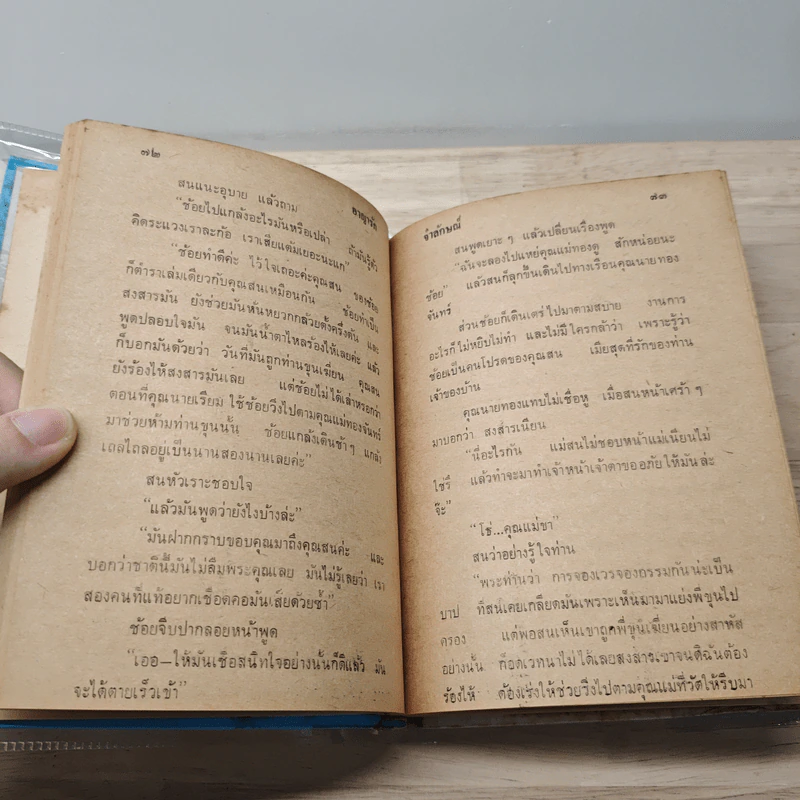 ๗๒
อาญารัก
สนแนะอุบาย แล้วถาม
"ช้อยไปแกล้งอะไรมันหรือเปล่า ถ้ามันรู้ตัว
คิดระแวงเราละก้อ เราเสียแต้มเยอะนะแก"
"ช้อยทำดีค่ะ ไว้ใจเถอะค่ะคุณสน ของช้อย
ก็ตำราเล่มเดียวกับคุณสนเหมือนกัน ช้อยทำเป็น
สงสารมัน ยังช่วยมันหั่นหยวกกล้วยตั้งครึ่งตัน และ
พูดปลอบใจมัน จนมันน้ำตาไหลร้องไห้เลยค่ะ แล้ว
ก็บอกมันด้วยว่า วันที่มันถูกท่านขุนเฆี่ยน คุณสน
ยังร้องไห้สงสารมันเลย แต่ช้อยไม่ได้เล่าหรอกว่า
ตอนที่คุณนายเรียม ใช้ช้อยวิ่งไปตามคุณแม่ทองจันทร์
มาช่วยห้ามท่านขุนนั้น ช้อยแกล้งเดินช้าๆ แกล้ง
เถลไถลอยู่เป็นนานสองนานเลยค่ะ"
สนหัวเราะชอบใจ
"แล้วมันพูดว่ายังไงบ้างล่ะ"
"มันฝากกราบขอบคุณมาถึงคุณสนค่ะ และ
บอกว่าชาตินี้มันไม่ลืมพระคุณเลย มันไม่รู้เลยว่า เรา
สองคนที่แท้อยากเชือดคอมันเสียด้วยซ้ำ"
ช้อยจีบปากลอยหน้าพูด
"เออ—ให้มันเชื่อสนิทใจอย่างนั้นก็ดีแล้ว มัน
จะได้ตายเร็วเข้า"
จำลักษณ์
๗๓
สนพูดเยาะๆ แล้วเปลี่ยนเรื่องพูด
"ฉันจะลองไปแหย่คุณแม่ทองดู สักหน่อยนะ
ช้อย" แล้วสนก็ลุกขึ้นเดินไปทางเรือนคุณนายทอง
จันทร์
ส่วนช้อยก็เดินเตร่ไปมาตามสบาย งานการ
อะไรก็ไม่หยิบไม่ทำ และไม่มีใครกล้าว่า เพราะรู้ว่า
ช้อยเป็นคนโปรดของคุณสน เมียสุดที่รักของท่าน
เจ้าของบ้าน
คุณนายทองแทบไม่เชื่อหู เมื่อสนหน้าเศร้าๆ
มาบอกว่า สงสารเนียน
"นี่อะไรกัน แม่สนไม่ชอบหน้าแม่เนียนไม่
ใช่รึ แล้วทำจะมาทำเจ้าหน้าเจ้าตาขออภัยให้มันล่ะ
จ๊ะ"
"โธ่...คุณแม่ขา"
สนว่าอย่างรู้ใจท่าน
"พระท่านว่า การจองเวรจองกรรมกันน่ะเป็น
บาป ที่สนเคยเกลียดมันเพราะเห็นมามาแย่งพี่ขุนไป
ครอง แต่พอสนเห็นเขาถูกพี่ขุนเฆี่ยนอย่างสาหัส
อย่างนั้น ก็อดเวทนาไม่ได้เลยสงสารเขาจนดิฉันต้อง
ร้องไห้ ต้องเร่งให้ช่วยวิ่งไปตามคุณแม่ที่วัดให้รีบมา